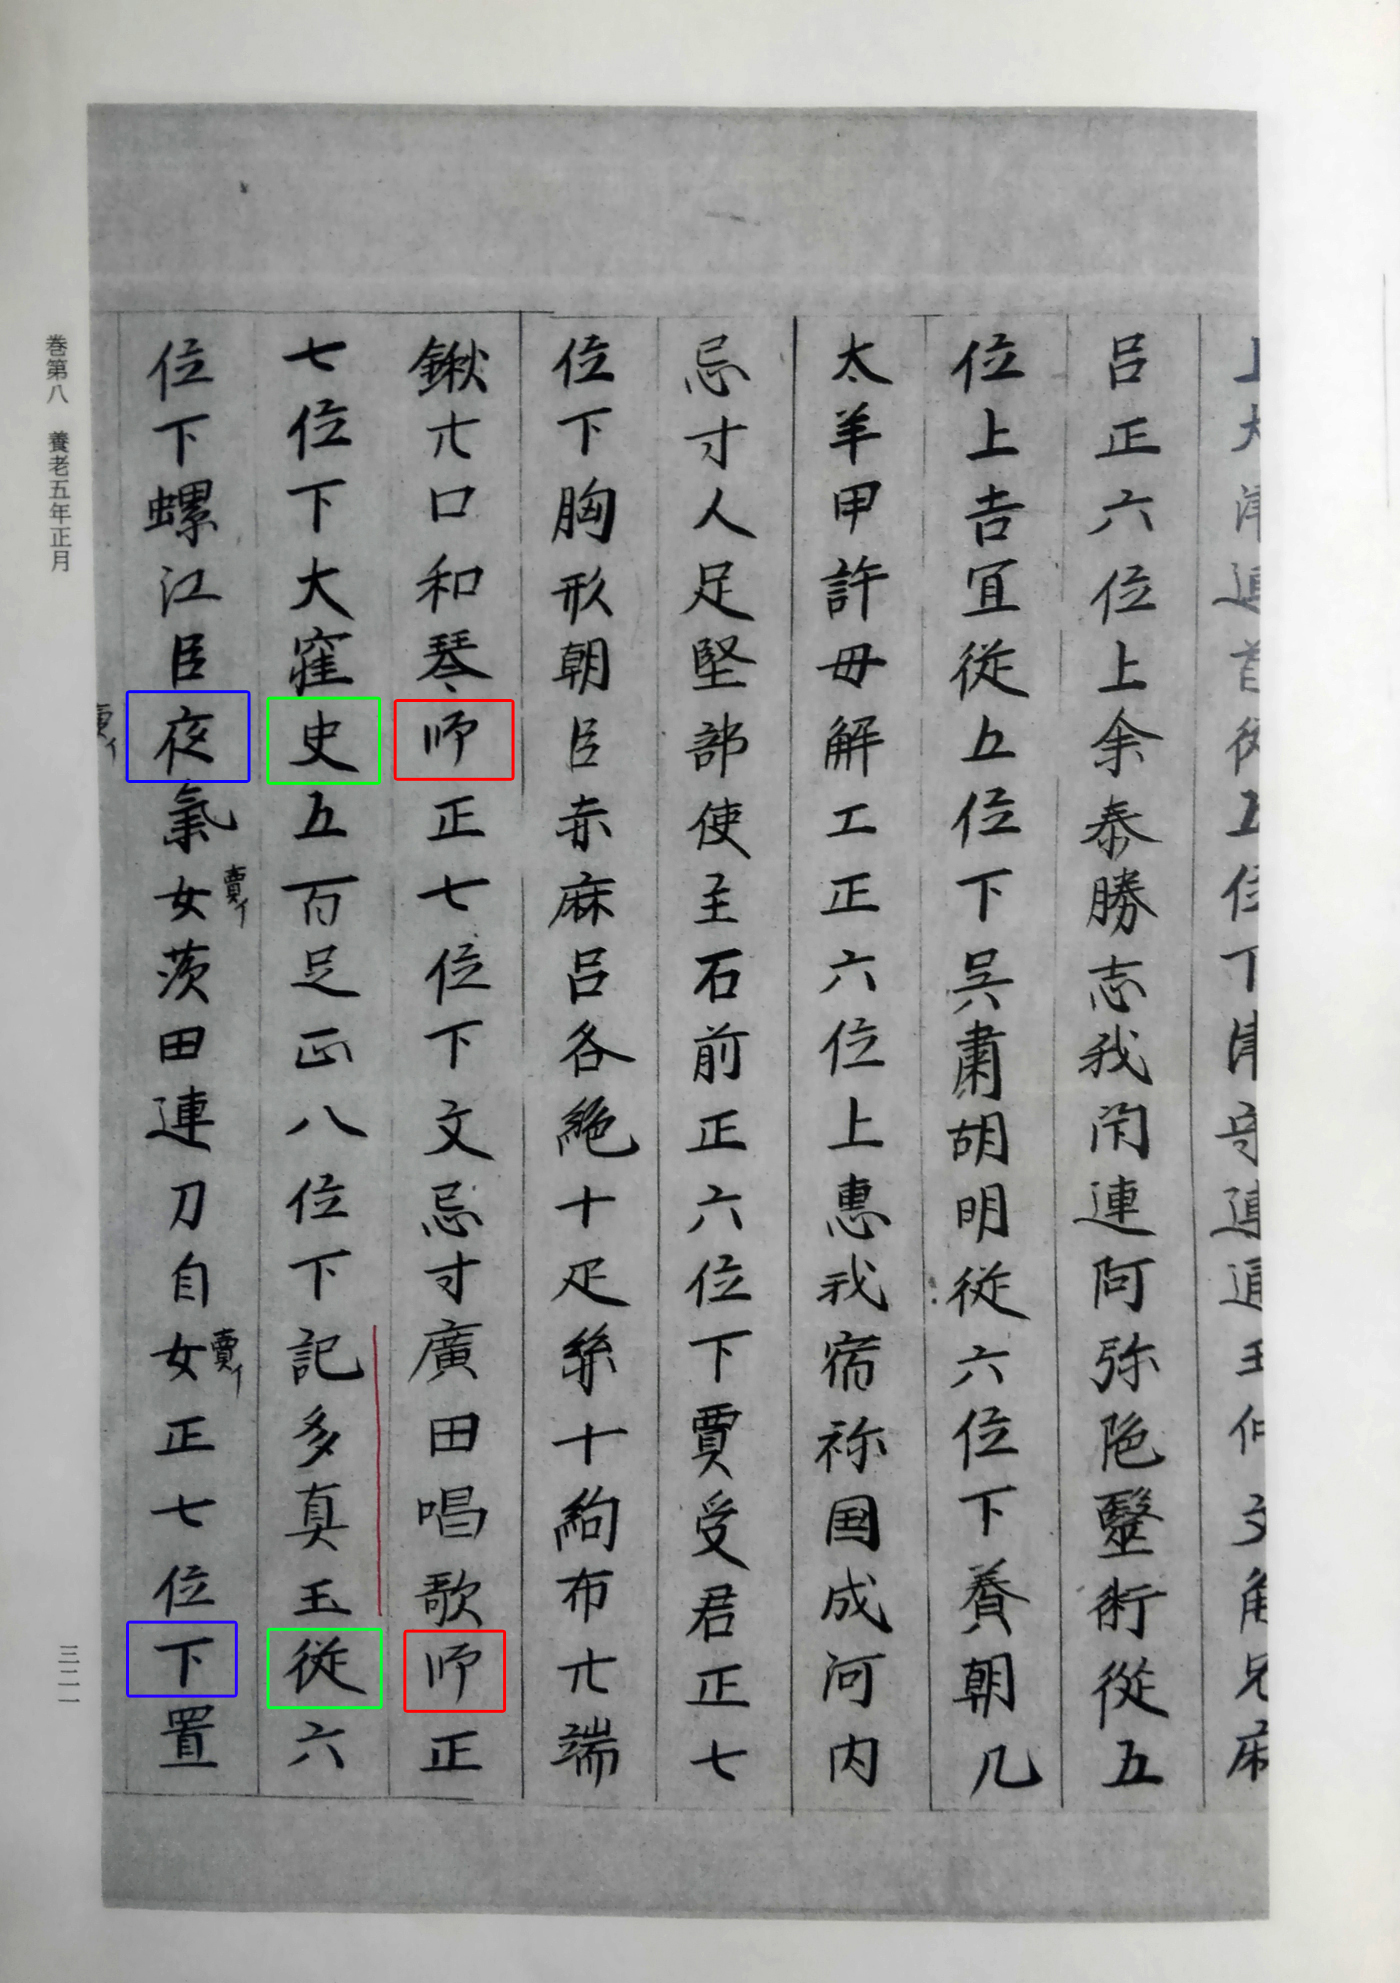 呂正六位上余泰勝志我閇連阿弥陁毉術從五
位上吉冝従五位下吳肅胡明従六位下餋朝几
太羊甲許毋解工正六位上惠我宿祢国成河内
忌寸人足堅部使主石前正六位下賈受君正七
位下胸形朝臣赤麻呂各絁十疋絲十絇布卄端
鍬卄口和琴師正七位下文忌寸廣田唱歌師正
七位下大窪史五百足正八位下記多真玉従六
位下螺江臣夜氣女茨田連刀自女正七位下置
賣イ
賣イ
賣イ
巻第八 養老五年正月
三二一